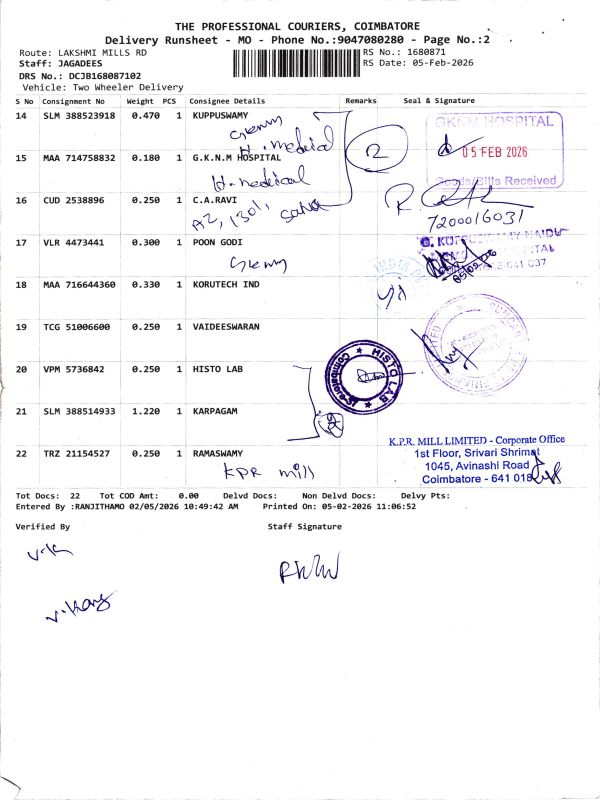 THE PROFESSIONAL COURIERS, COIMBATORE
Delivery Runsheet - MO - Phone No.:9047080280 - Page No.:2
Route: LAKSHMI MILLS RD
RS No.: 1680871
Staff: JAGADEES
RS Date: 05-Feb-2026
DRS No.: DCJB168087102
Vehicle: Two Wheeler Delivery
S No Consignment No Weight PCS Consignee Details Remarks Seal & Signature
14 SLM 388523918 0.470 1 KUPPUSWAMY
GKNM HOSPITAL
H. medical
05 FEB 2026
15 MAA 714758832 0.180 1 G.K.N.M HOSPITAL
2
H. medical
Goods/Bills Received
16 CUD 2538896 0.250 1 C.A.RAVI
A2, 1301,
7200016031
17 VLR 4473441 0.300 1 POON GODI
G. KUPPUSWAMY NAIDU
HOSPITAL
641 037
05/02/26
18 MAA 716644360 0.330 1 KORUTECH IND
19 TCG 51006600 0.250 1 VAIDEESWARAN
20 VPM 5736842 0.250 1 HISTO LAB
HISTO LAB
Coimbatore
21 SLM 388514933 1.220 1 KARPAGAM
K.P.R. MILL LIMITED - Corporate Office
22 TRZ 21154527 0.250 1 RAMASWAMY
1st Floor, Srivari Shrimat
KPR mill
1045, Avinashi Road
Coimbatore - 641 018
Tot Docs: 22 Tot COD Amt: 0.00 Delvd Docs: Non Delvd Docs: Delvy Pts:
Entered By :RANJITHAMO 02/05/2026 10:49:42 AM Printed On: 05-02-2026 11:06:52
Verified By Staff Signature